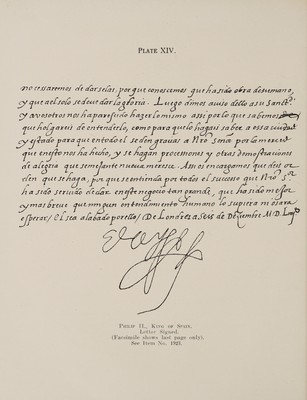 PLATE XIV.
no cessaremos de darselas, por que conoscemos que ha sido obra de su mano,
y que a el solo se deue dar la gloria. Luego dimos auiso dello a su Sanct.
y a vosotros nos ha parescido hazer lo mismo assi por lo que sabemos
que holgareis de entenderlo, como para que lo hagais saber a essa ciudad
y estado para que en todo el se den gracias a Nro Señor por la merced
que en esto nos ha hecho, y se hagan processiones y otras demostraciones
de alegria que semejante nueua meresce. Assi os encargamos que deis or
den que se haga, por que se entienda por todos el successo que Nro Sr.
ha sido seruido de dar en este negocio tan grande, que ha sido mejor
y mas breue que ningun entendimiento humano lo supiera ni osara
esperar, El sea alabado por ello / De Londres a seis de Deziembre M.D.L
PHILIP II., KING OF SPAIN.
Letter Signed.
(Facsimile shows last page only).
See Item No. 1923.